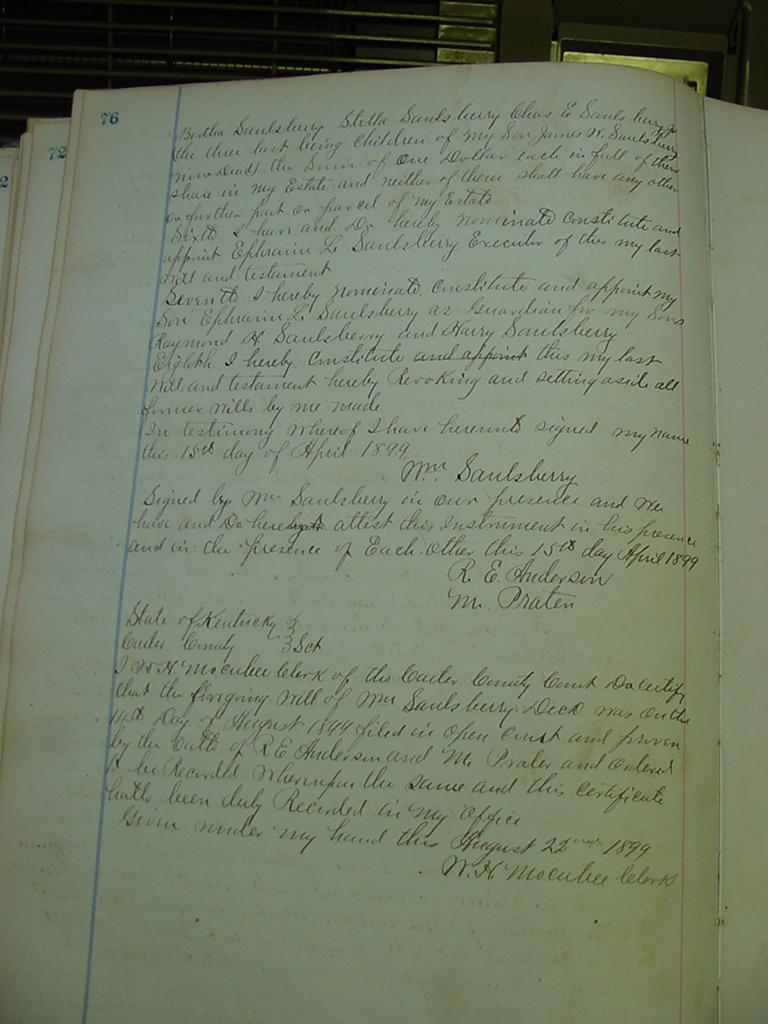 76
72
2
Bertha Saulsberry Stella Saulsberry Chas E Saulsberry
the three last being Children of my Son James W. Saulsberry
now Decd the Sum of One Dollar each in full of their
share in my Estate and neither of them shall have any other
or further part or parcel of my Estate
Sixth I have and Do hereby nominate Constitute and
appoint Ephraim L. Saulsberry Executor of this my last
Will and testament
Seventh I hereby nominate Constitute and appoint my
Son Ephraim L. Saulsberry as Guardian for my Sons
Raymond H. Saulsberry and Harry Saulsberry
Eighth I hereby Constitute and appoint this my last
Will and testament hereby Revoking and setting aside all
former wills by me made
In testimony whereof I have hereunto signed my name
this 15th day of April 1899
Wm Saulsberry
Signed by Wm Saulsberry in our presence and we
have and Do hereby attest this Instrument in his presence
and in the presence of Each other this 15th day April 1899
R. E. Anderson
M. Prater
State of Kentucky }
Carter County } Sct
I W H McCubee Clerk of the Carter County Court Do certify
that the foregoing will of Wm Saulsberry Decd was on the
14th Day of August 1899 filed in open Court and proven
by the Oath of R E Anderson and M. Prater and ordered
to be Recorded Whereupon the same and this certificate
hath been duly Recorded in my office
Given under my hand this August 22nd 1899
W. H. McCubee Clerk